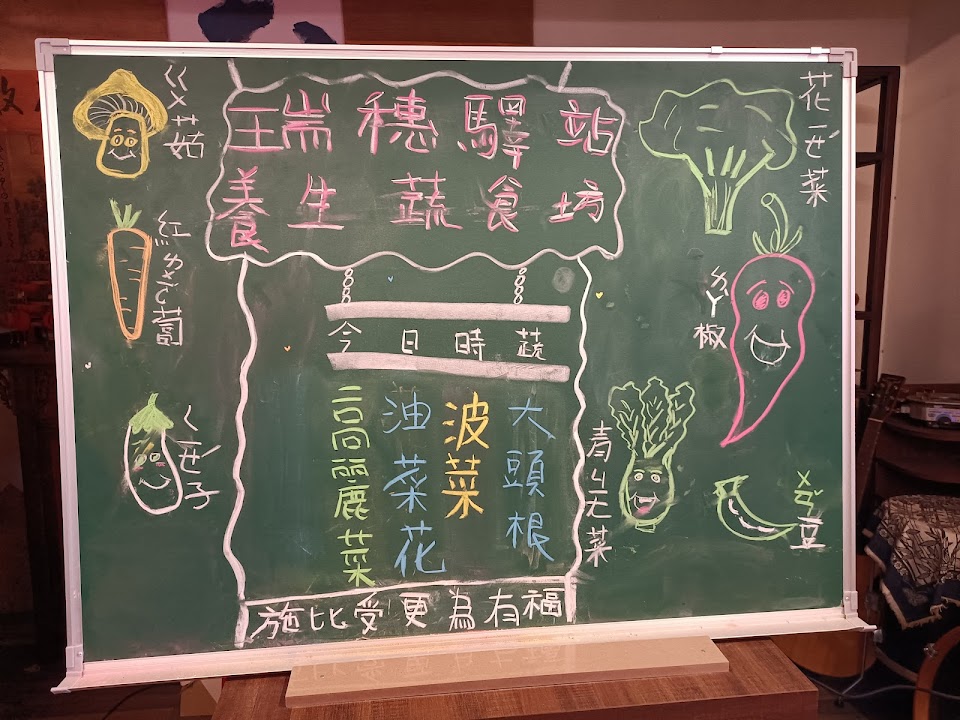 瑞穗驛站
養生蔬食坊
今日時蔬
大頭根
波菜
油菜花
高麗菜
施比受更為有福
ㄍㄨ菇
紅ㄌㄨㄛˊ蔔
ㄑㄧㄝˊ子
花ㄧㄝˊ菜
ㄌㄚˋ椒
青ㄐㄧㄤ菜
豆